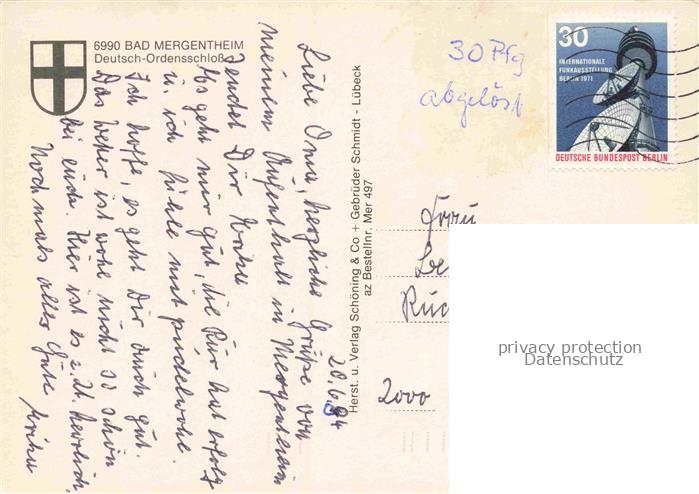 6990 BAD MERGENTHEIM
Deutsch-Ordensschloß
20.6.84
Liebe Oma, herzliche Grüße von
meinem Aufenthalt in Mergentheim
sendet Dir
Es geht mir gut, die Kur hat erfolg
u. ich fühle mich pudelwohl
Ich hoffe, es geht Dir auch gut.
Das Wetter ist wohl nicht so schön
bei euch. Hier ist es z. Zt. herrlich
Nochmals alles Gute
Herst. u. Verlag Schöning & Co + Gebrüder Schmidt - Lübeck
az Bestellnr. Mer 497
30 Pfg
abgelöst
30
INTERNATIONALE
FUNKAUSSTELLUNG
BERLIN 1971
DEUTSCHE BUNDESPOST BERLIN
Frau
2000
privacy protection
Datenschutz